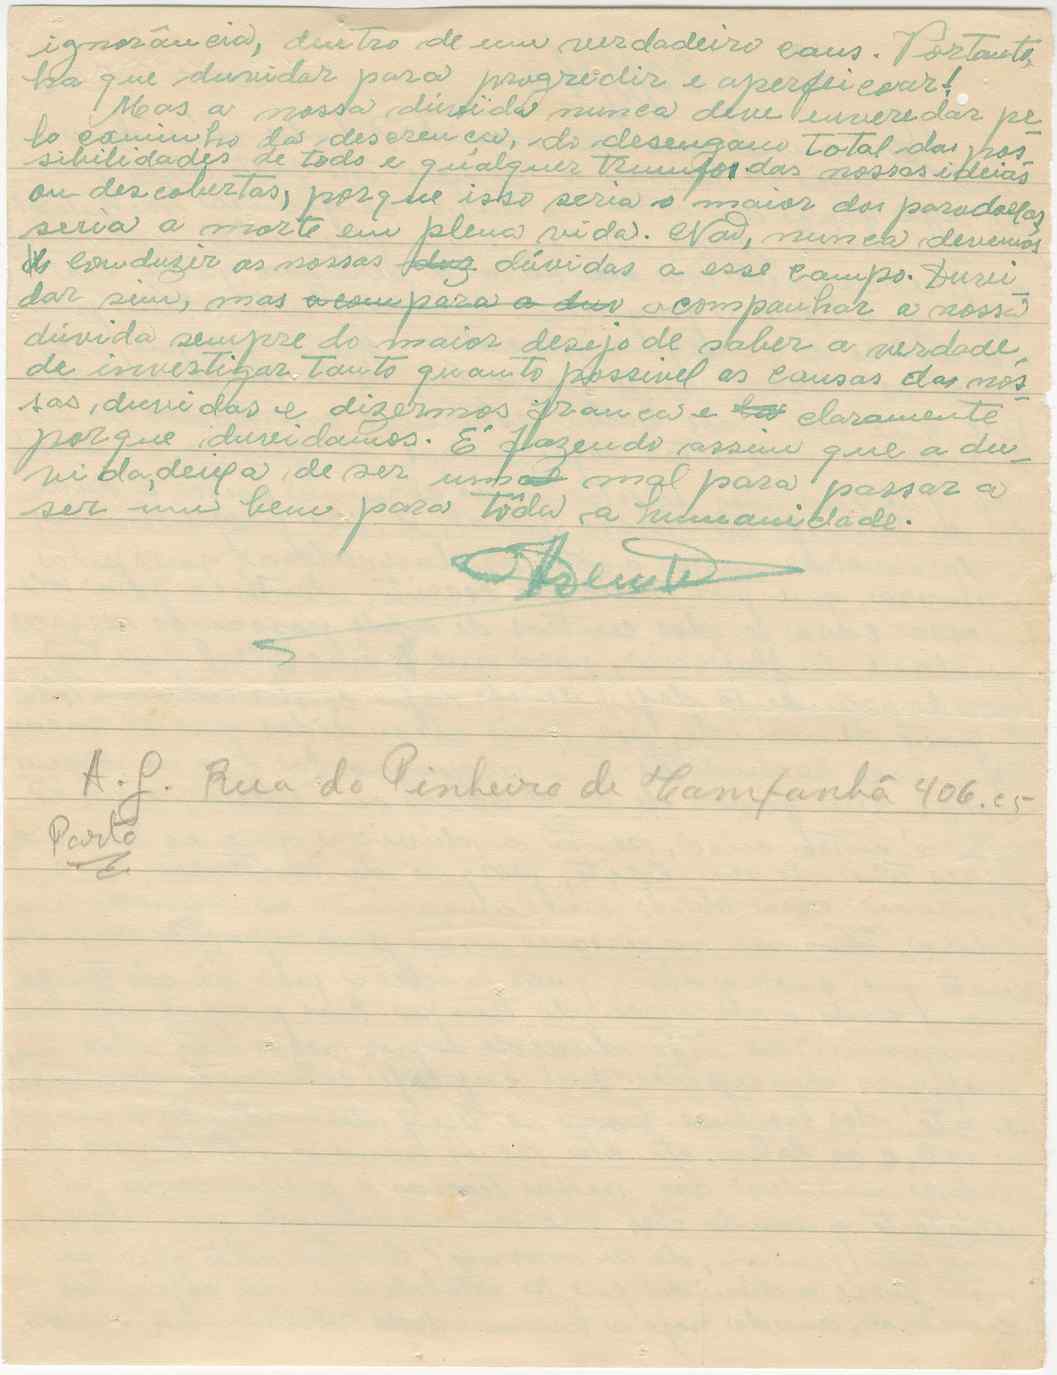 ignorância, dentro de um verdadeiro caus. Portanto,
ha que duvidar para progredir e aperfeiçoar!
Mas a nossa dúvida nunca deve enveredar pe
lo caminho da descrença, do desengano total das pos
sibilidades de todo e qualquer triunfos das nossas ideias
ou descobertas, porque isso seria o maior dos paradoxos
seria a morte em plena vida. Não, nunca devemos
conduzir as nossas duz dúvidas a esse campo. Duvi
dar sim, mas acompara a duv acompanhar a nossa
dúvida sempre do maior desejo de saber a verdade,
de investigar tanto quanto possivel as causas das nos
sas duvidas e dizermos franca e claramente
porque duvidamos. E' fazendo assim que a du_
vida, deixa de ser um mal para passar a
ser um bem para tôda a humanidade.
A. G. Rua do Pinheiro de Campanhã 406. c5
Porto